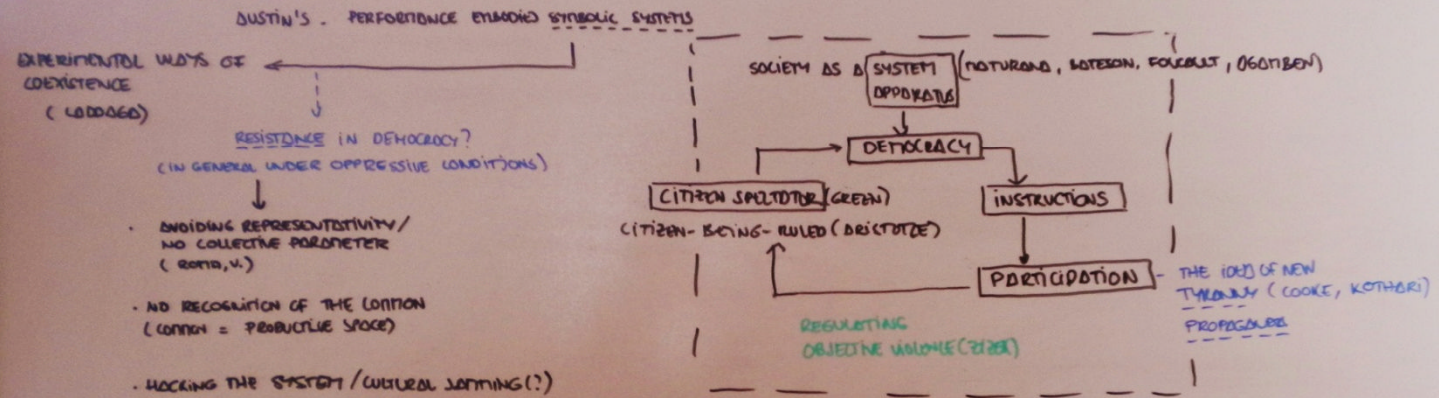 AUSTIN'S. PERFORMANCE EMBODIED SYMBOLIC SYSTEMS
EXPERIMENTAL WAYS OF
COEXISTENCE
(LADDAGA)
RESISTANCE IN DEMOCRACY?
(IN GENERAL UNDER OPPRESSIVE CONDITIONS)
· AVOIDING REPRESENTATIVITY/
NO COLLECTIVE PARAMETER
(ROMA, V.)
· NO RECOGNITION OF THE COMMON
(COMMON = PRODUCTIVE SPACE)
· HACKING THE SYSTEM/CULTURAL JAMMING(?)
SOCIETY AS A SYSTEM (MATURANA, BATESON, FOUCAULT, AGAMBEN)
APPARATUS
DEMOCRACY
CITIZEN SPECTATOR (GREEN)
CITIZEN-BEING-RULED (ARISTOTLE)
INSTRUCTIONS
PARTICIPATION - THE IDEA OF NEW
TYRANNY (COOKE, KOTHARI)
PROPAGANDA
REGULATING
OBJECTIVE VIOLENCE (ZIZEK)